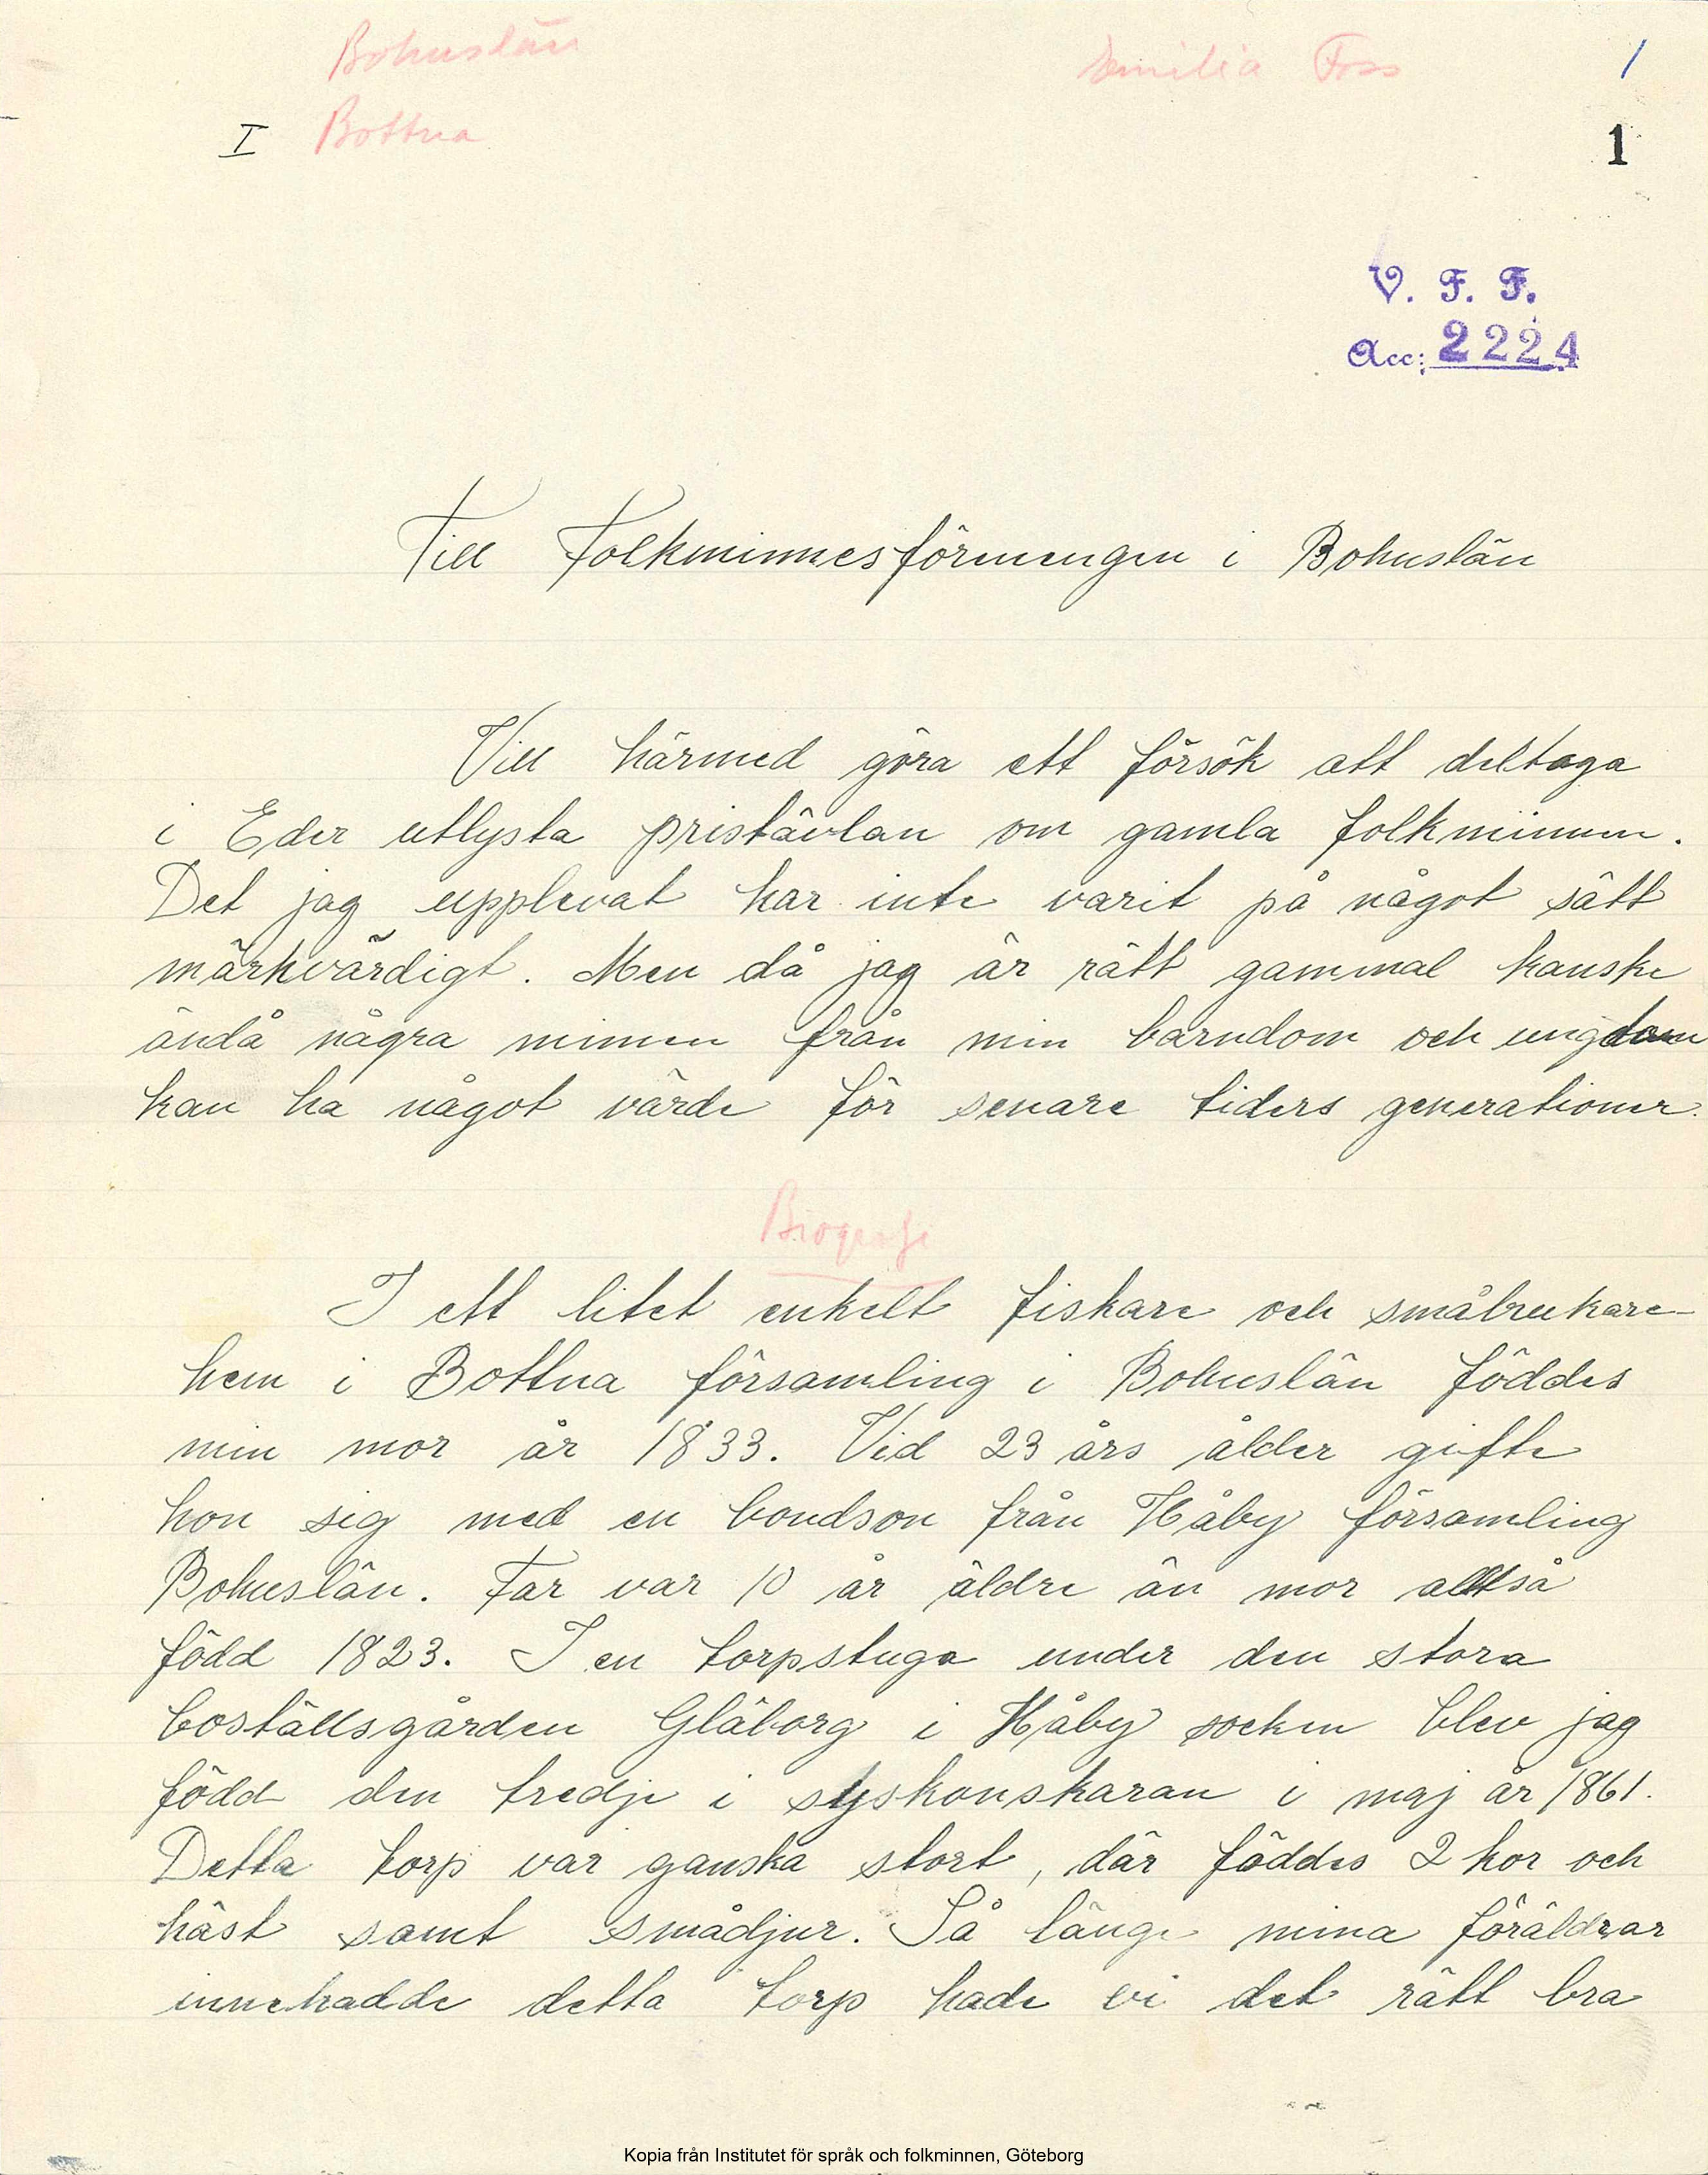 Bohuslän
Emilia Foss
/
I Bottna
1
V. F. F.
Acc: 2224
Till Folkminnesförenengen i Bohuslän
Vill härmed göra ett försök att deltaga
i Eder utlysta pristävlan om gamla folkminnen.
Det jag upplevat har inte varit på något sätt
märkvärdigt. Men då jag är rätt gammal kanske
ändå några minnen från min barndom och ungdom
kan ha något värde för senare tiders generationer.
Biografi
I ett litet enkelt fiskare och småbrukare-
hem i Bottna församling i Bohuslän föddes
min mor år 1833. Vid 23 års ålder gifte
hon sig med en bondson från Håby församling
Bohuslän. Far var 10 år äldre än mor alltså
född 1823. I en torpstuga under den stora
boställsgården Gläborg i Håby socken blev jag
född den tredje i syskonskaran i maj år 1861.
Detta torp var ganska stort, där föddes 2 kor och
häst samt smådjur. Så länge mina föräldrar
innehadde detta torp hade vi det rätt bra
Kopia från Institutet för språk och folkminnen, Göteborg